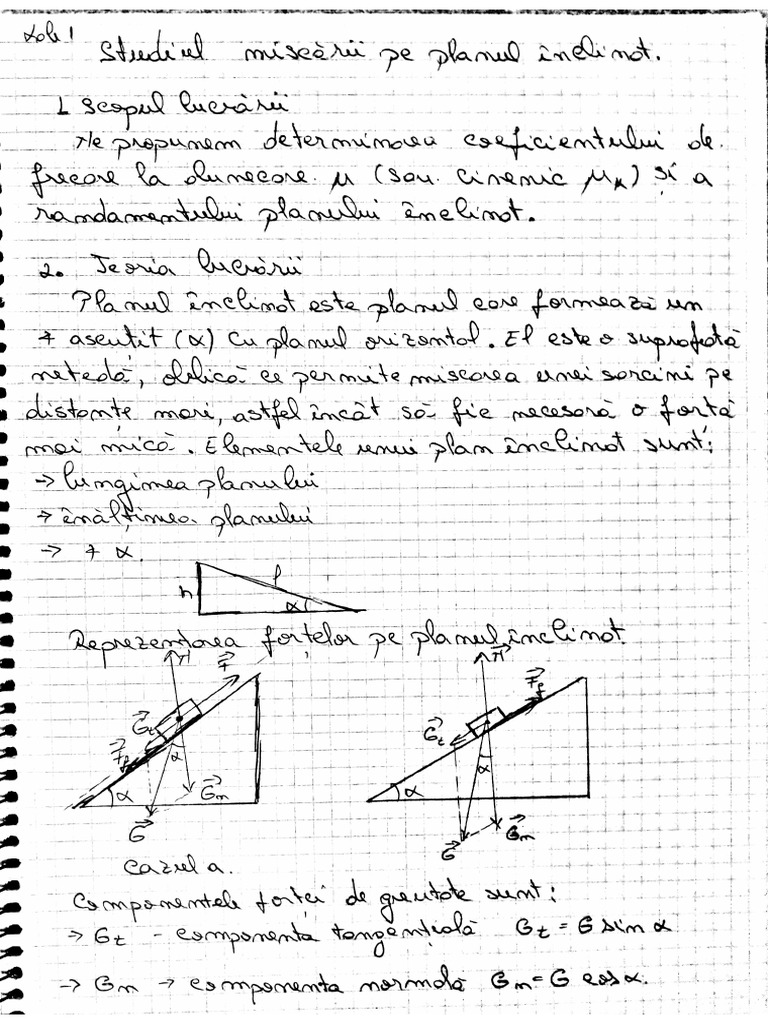 Lab 1
Studiul miscării pe planul înclinat.
1 Scopul lucrării
Ne propunem determinarea coeficientului de
frecare la alunecare μ (sau cinemic μk) si a
randamentului planului înclinat.
2. Teoria lucrării
Planul înclinat este planul care formează un
∢ ascutit (α) cu planul orizontal. El este o suprafată
netedă, oblică ce permite miscarea unei sarcini pe
distanțe mari, astfel încât să fie necesară o fortă
mai mică. Elementele unui plan înclinat sunt:
→ lungimea planului
→ înălțimea planului
→ ∢ α.
h l α
Reprezentarea forțelor pe planul înclinat
N F N Ff
Gt Gt
Ff α α
α Gn α
G G Gn
Cazul a.
Componentele fortei de greutate sunt:
→ Gt - componenta tangențială Gt = G sin α
→ Gn → componenta normală Gn = G cos α.